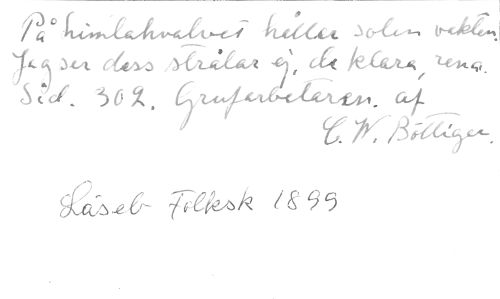 På himlahvalvet håller solen vakten.
Jag ser dess strålar ej, de klara, rena.
Sid. 302. Grufarbetaren. af
C. W. Böttiger.
Läseb Folksk 1899